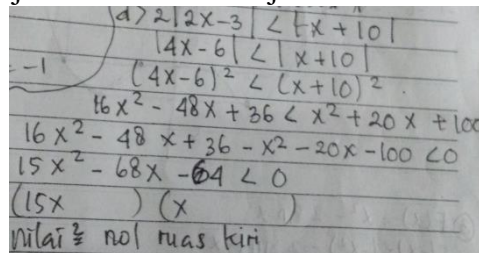 d) 2|2x-3| < |x+10|
|4x-6| < |x+10|
= -1
(4x-6)² < (x+10)²
16x² - 48x + 36 < x² + 20x + 100
16x² - 48x + 36 - x² - 20x - 100 < 0
15x² - 68x - 64 < 0
(15x      ) (x      )
nilai² nol ruas kiri